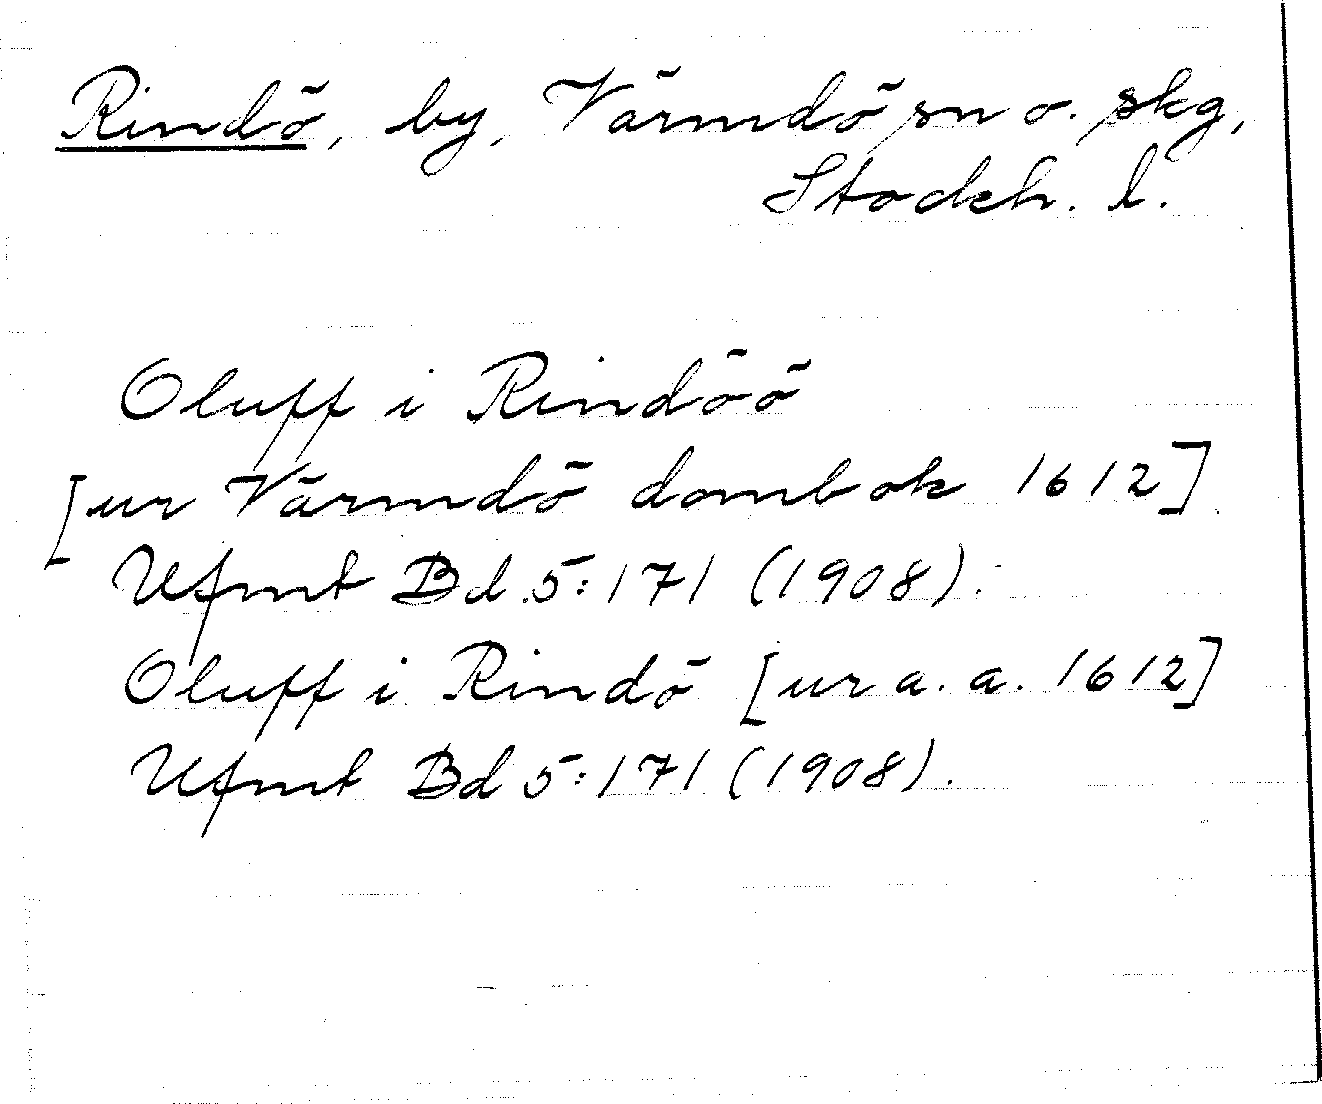 Rindö, by, Värmdö sn o. skg,
Stockh. l.
Oluff i Rindöö
[ur Värmdö dombok 1612]
Ufmt Bd 5:171 (1908).
Oluff i Rindö [ur a. a. 1612]
Ufmt Bd 5:171 (1908).